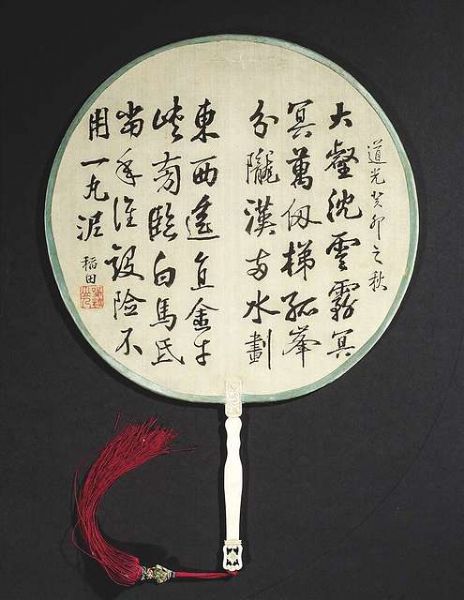 道光癸卯之秋
大壑沈雲霧冥
冥萬仞梯孤峯
分隴漢兩水劃
東西遙直金牛
峽旁臨白馬氐
當年誰設險不
用一丸泥
稻田